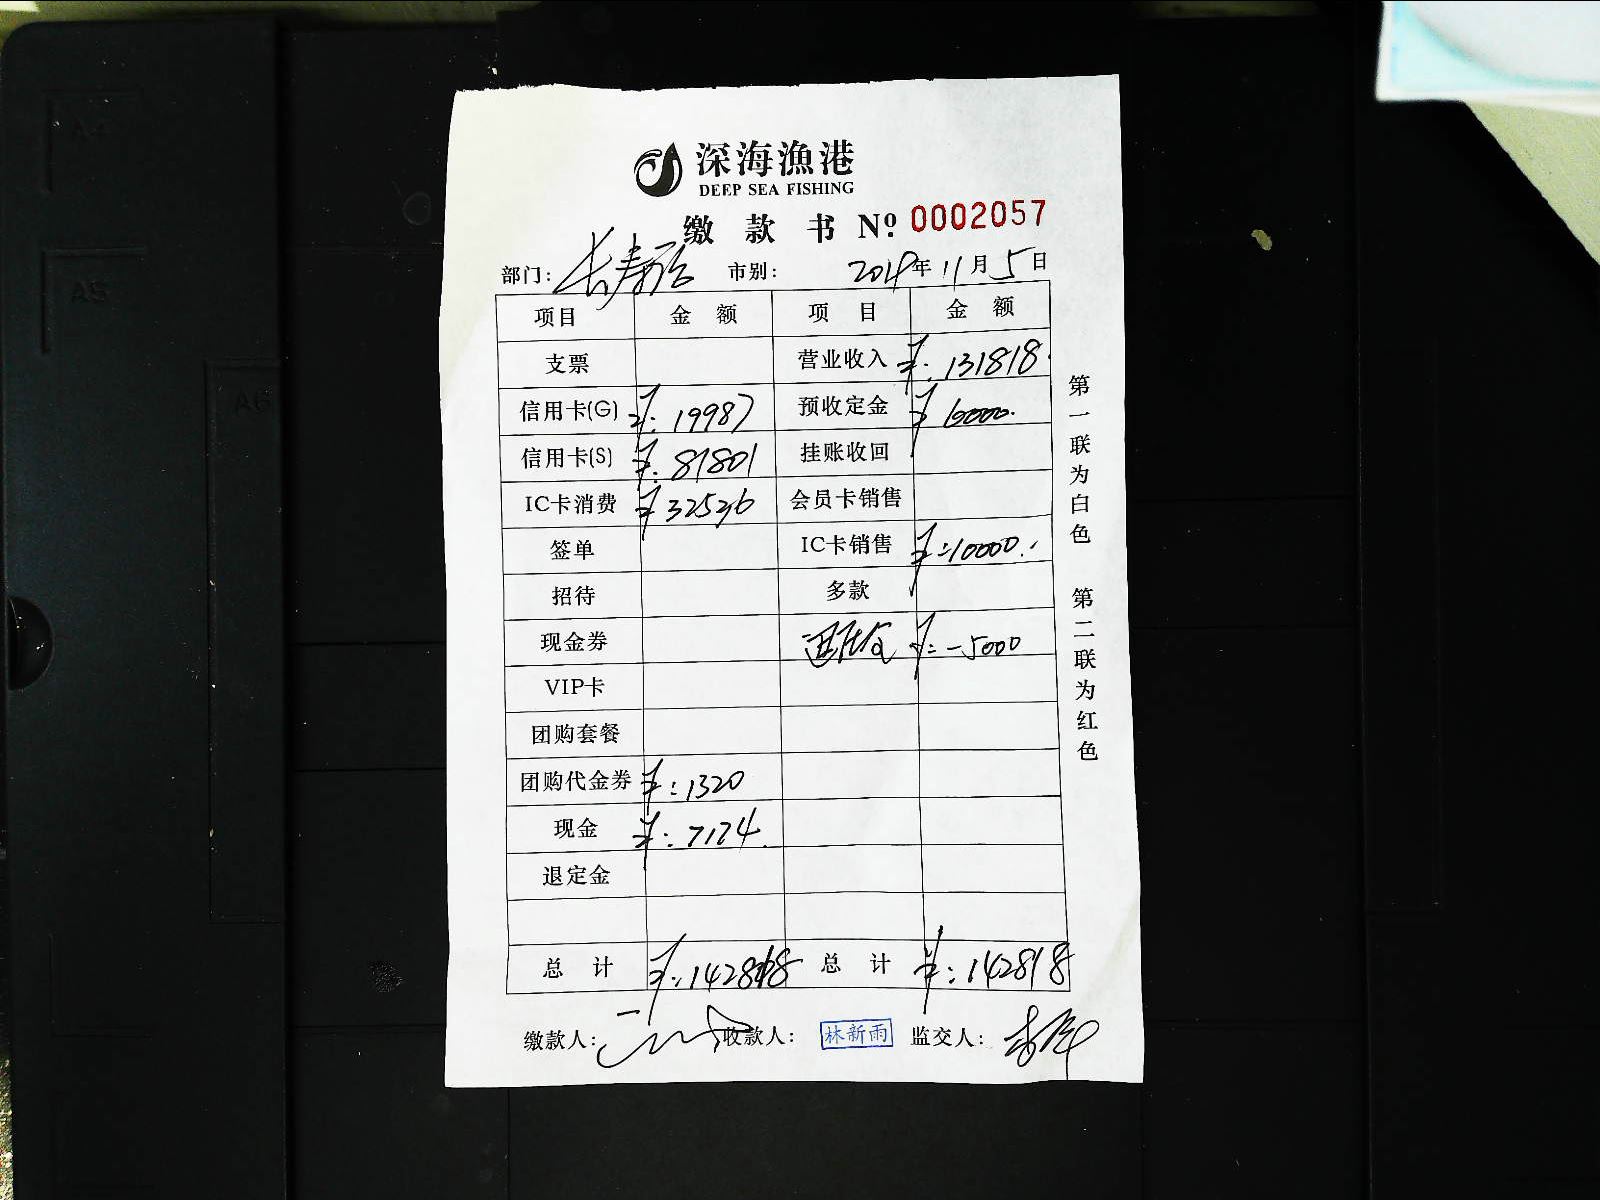 深海渔港
DEEP SEA FISHING
缴款书 Nº 0002057
部门: 长寿路 市别: 2014年11月5日
项目 金额 项目 金额
支票 营业收入 ¥: 131818.
信用卡(G) ¥: 19987 预收定金 ¥ 6000.
信用卡(S) ¥: 81801 挂账收回
IC卡消费 ¥ 32536 会员卡销售
签单 IC卡销售 ¥:10000.
招待 多款
现金券 ¥: -5000
VIP卡
团购套餐
团购代金券 ¥: 1320
现金 ¥: 7174.
退定金
总计 ¥: 142818 总计 ¥: 142818
缴款人: 收款人: 林新雨 监交人:
第一联为白色 第二联为红色
A4
A5
A6